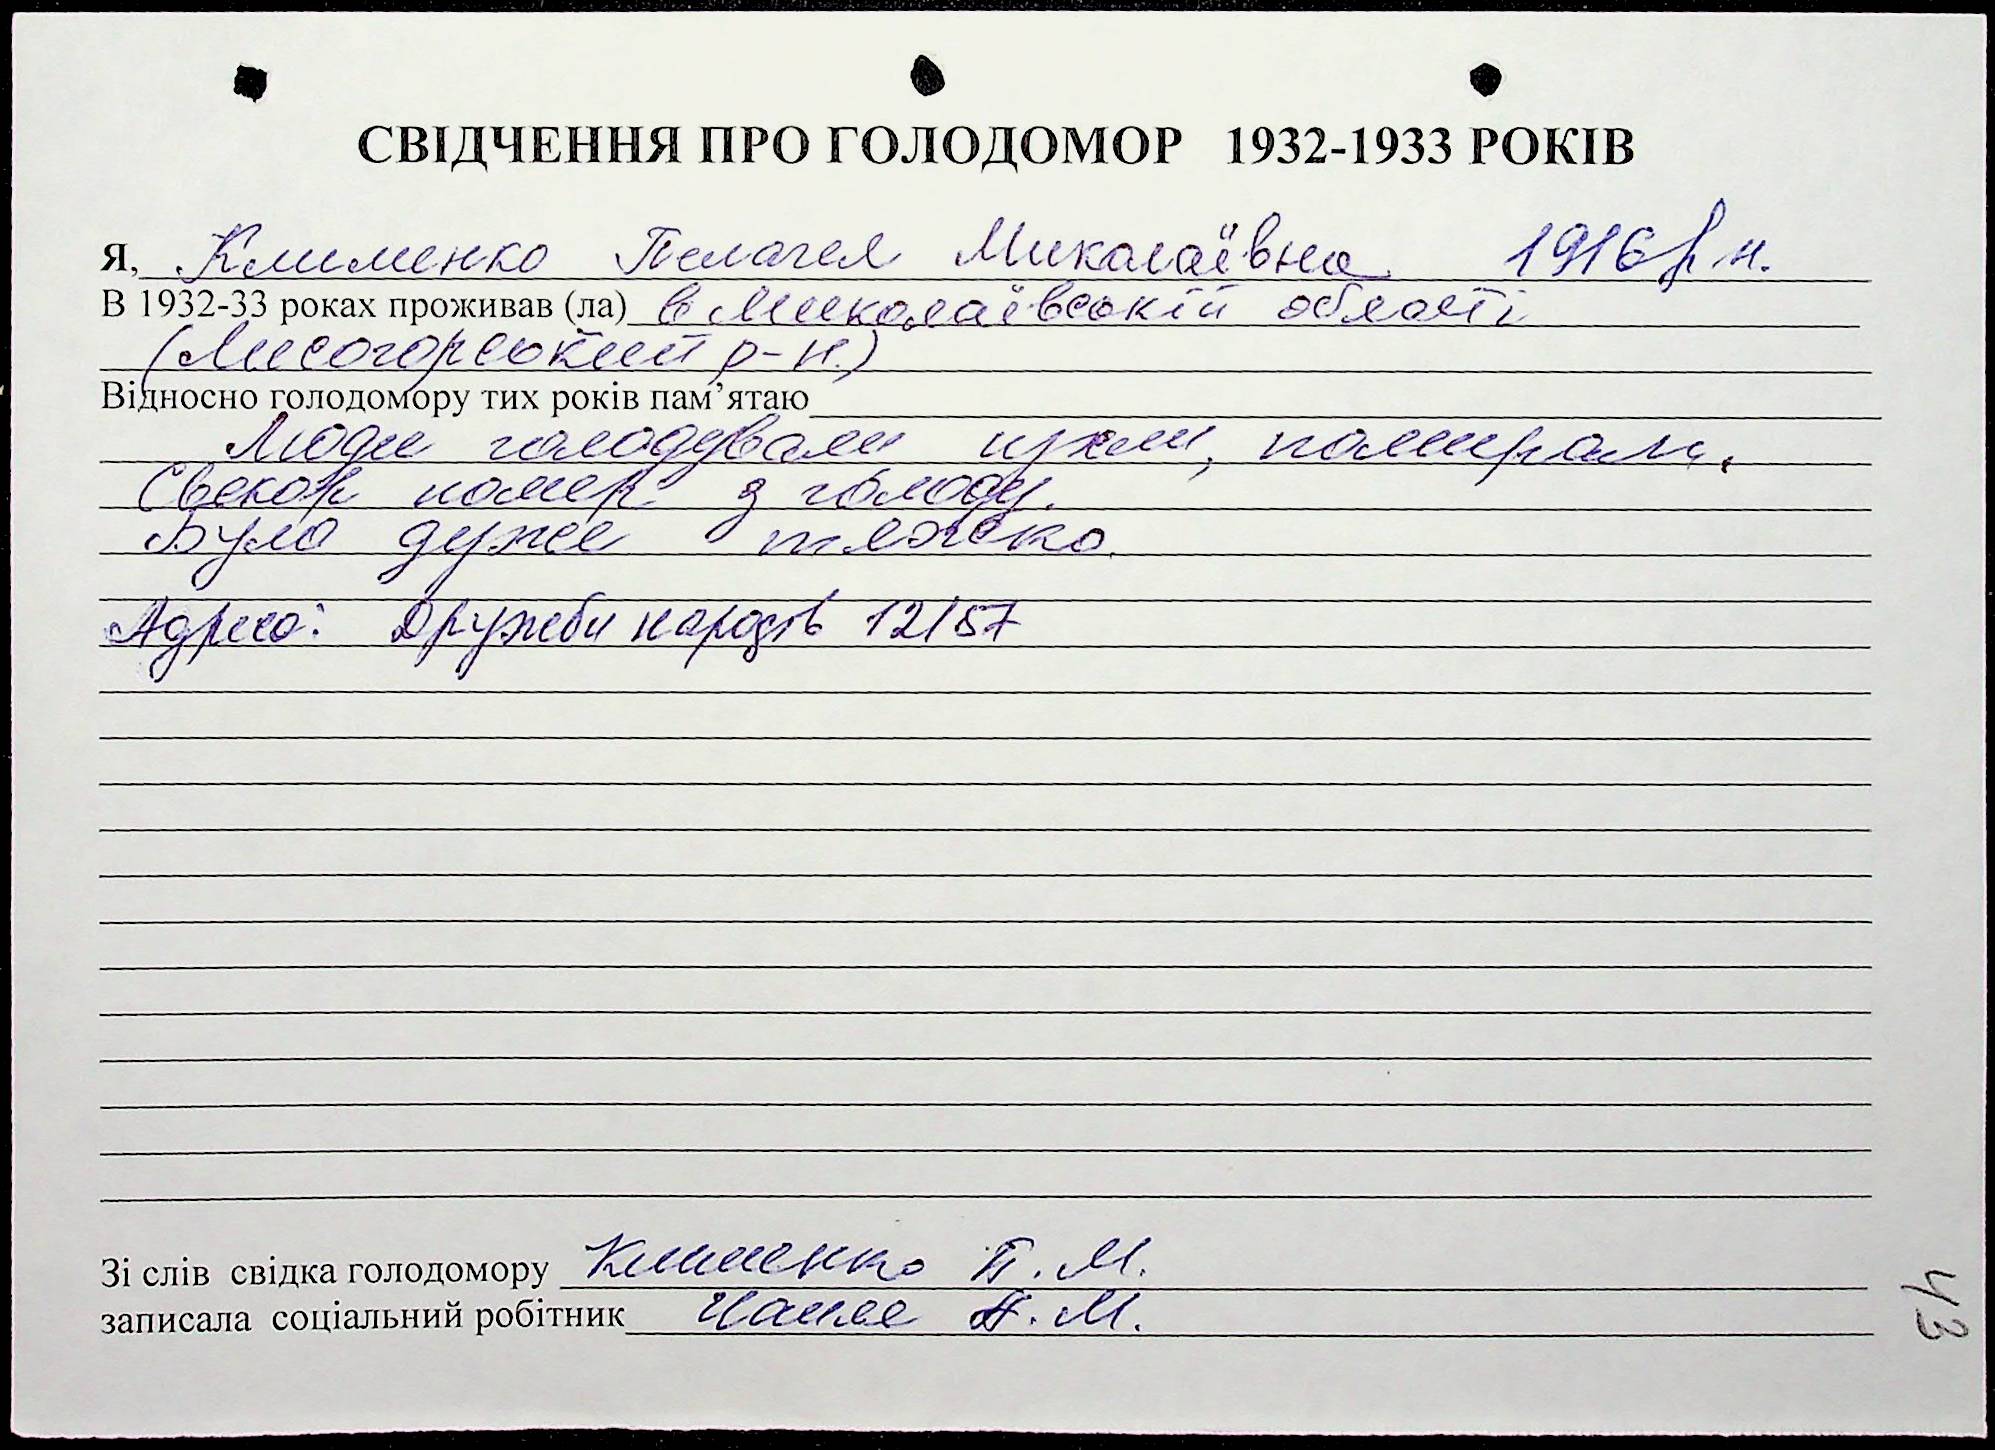 СВІДЧЕННЯ ПРО ГОЛОДОМОР 1932-1933 РОКІВ
Я, Клименко Пелагея Миколаївна 1916 р н.
В 1932-33 роках проживав (ла) в Миколаївській області
(Лисогорський р-н.)
Відносно голодомору тих років пам’ятаю
Люди голодували пухли, помирали.
Свекор помер з голоду.
Було дуже тяжко.
Адреса: Дружби народів 12/57
Зі слів свідка голодомору Клименко П. М.
записала соціальний робітник М.
43